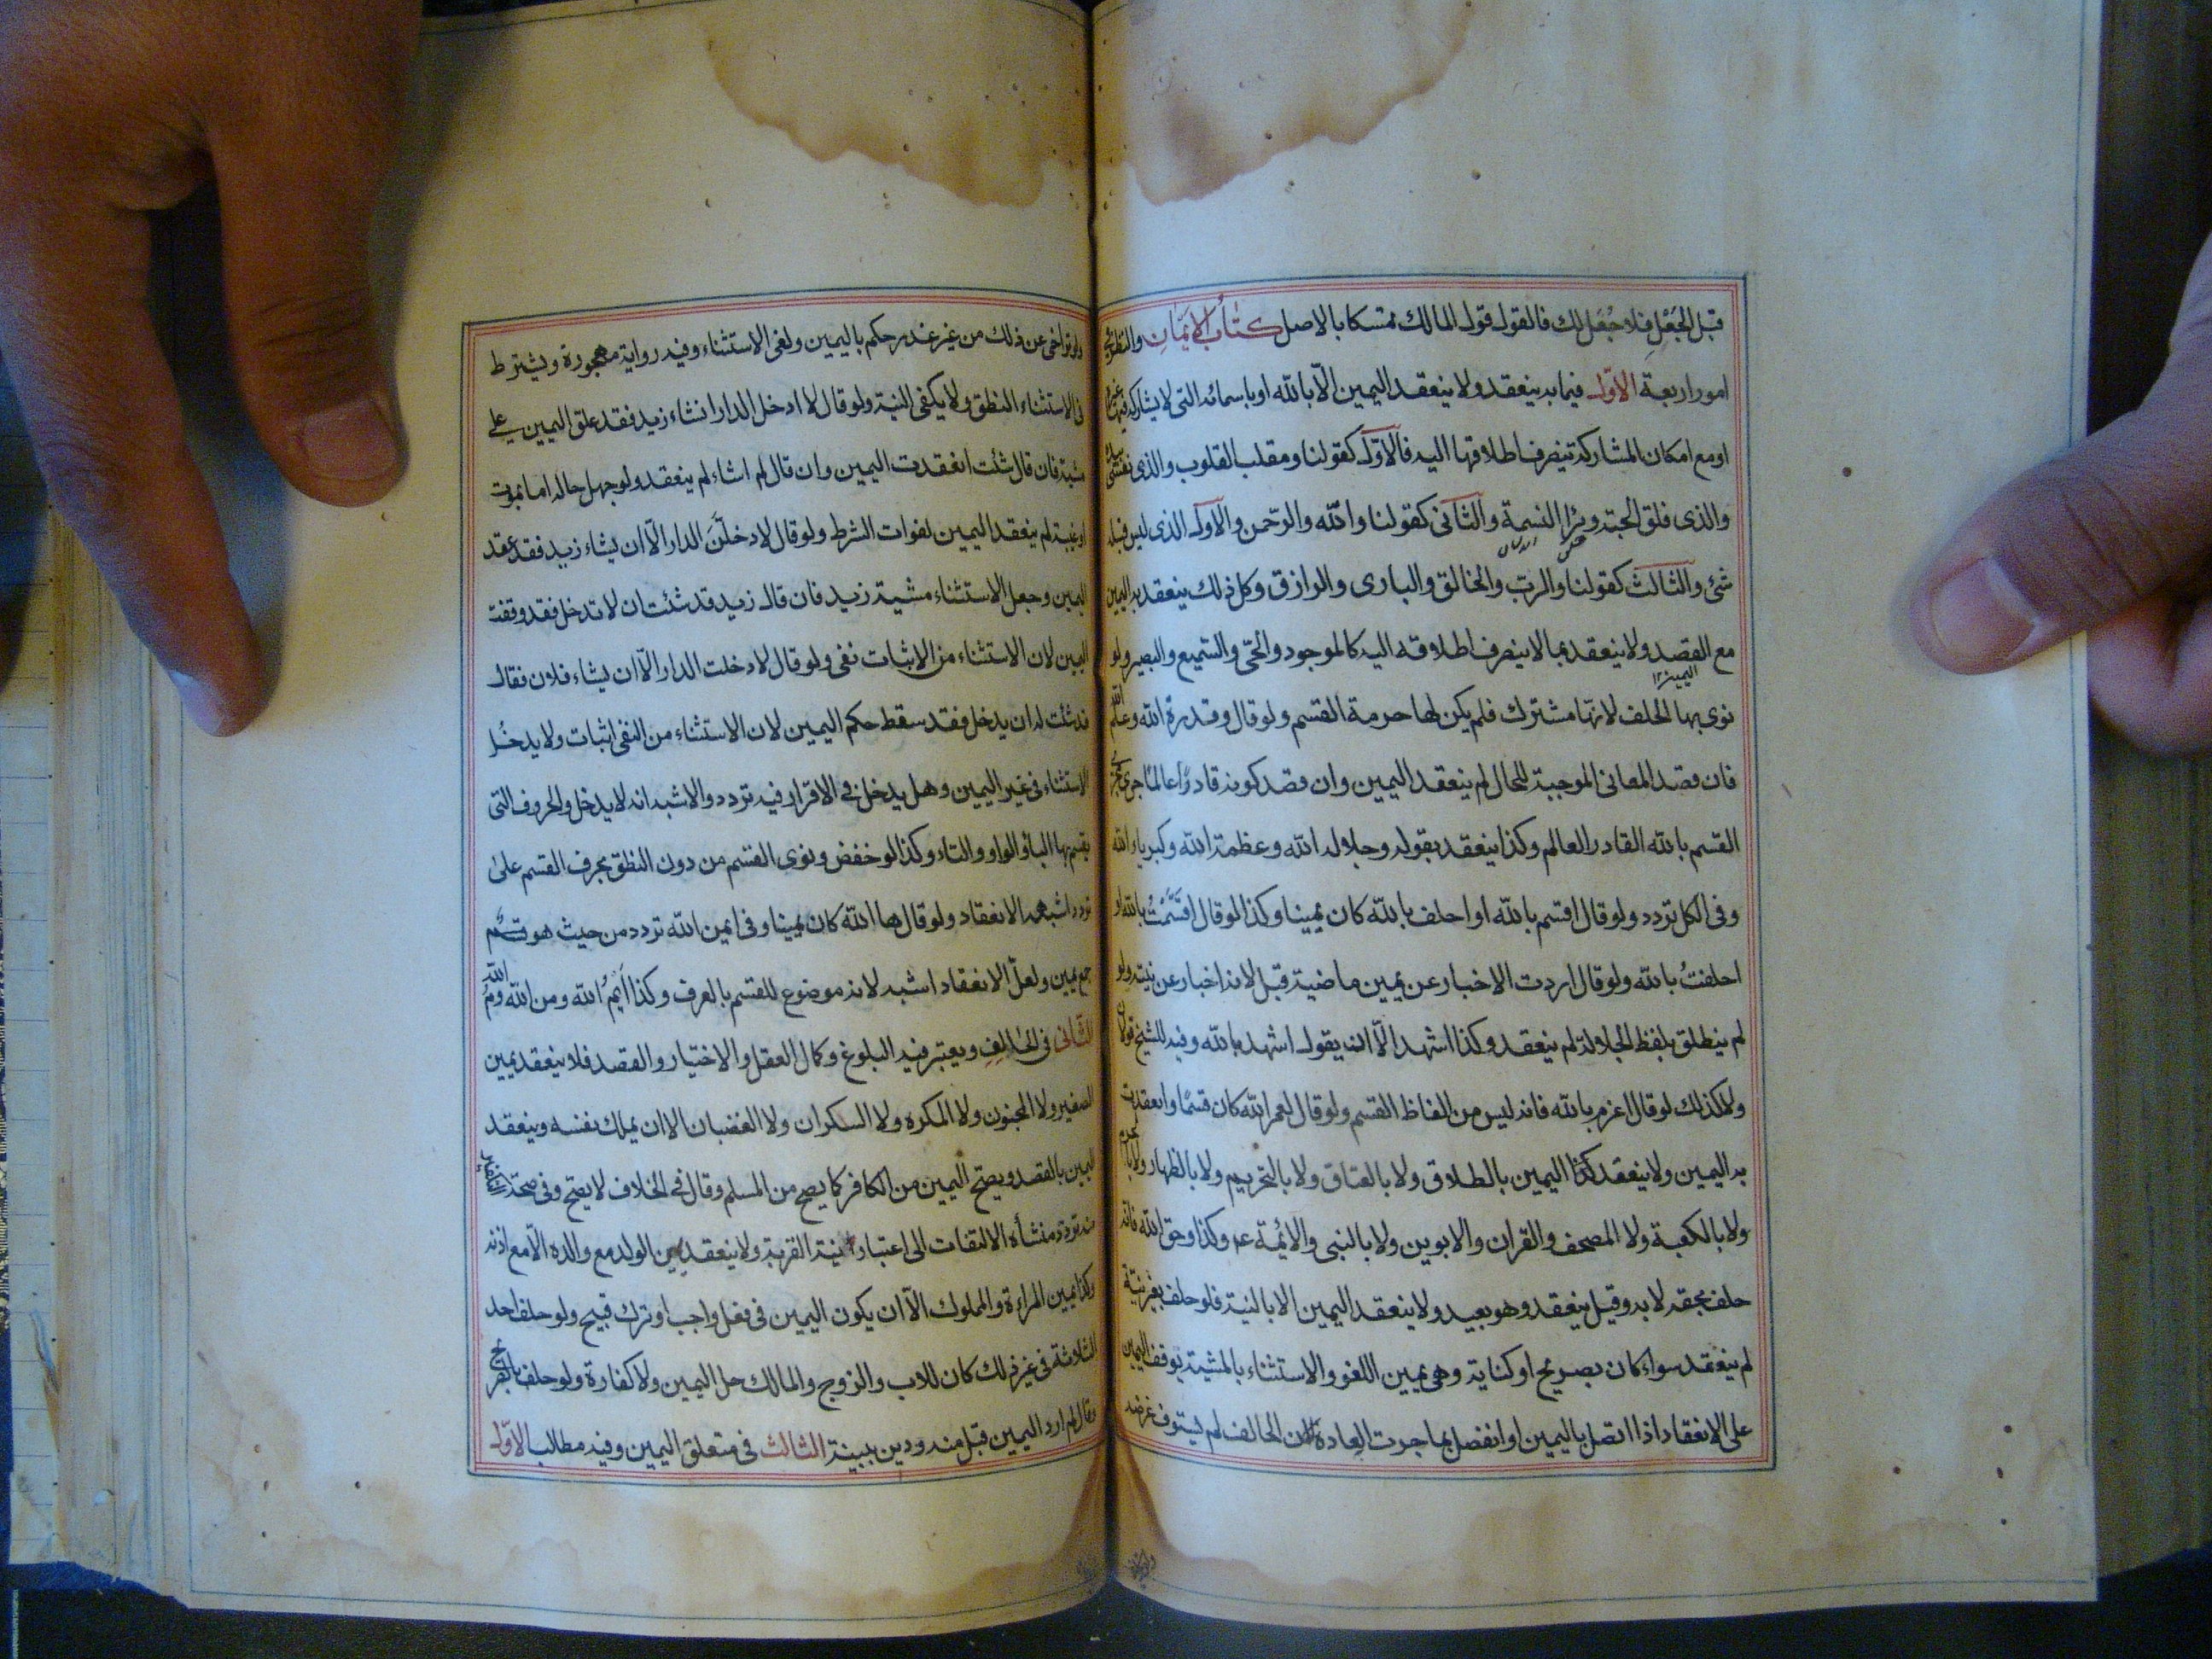 قبل الجَعْلِ فلا جُعَل لك فالقول قول المالك تمسكا بالاصل كتابُ الاَيمَانِ والنظر في
امور اربعة الاوّل فيما به ينعقد ولا ينعقد اليمين الّا بالله او باسمائه التى لا يشاركه فيها غيره
او مع امكان المشاركة ينصرف اطلاقها اليه فالاوّل كقولنا ومقلب القلوب والذى نفسى بيده
والذى فلق الحبة وبرا النسمة والثانى كقولنا والله والرحمن والاول الذى ليس قبله
شئ والثالث كقولنا والرب والخالق والبارى والرازق وكل ذلك ينعقد به اليمين
مع القصد ولا ينعقد بما لا ينصرف اطلاقه اليه كالموجود والحىّ والسّميع والبصير ولو
نوى بها الحلف لانها مشترك فلم يكن لها حرمة القسم ولو قال وقدرة الله وعلم الله
فان قصد المعانى الموجبة للحال لم ينعقد اليمين وان قصد كونه قادرًا عالمًا جرى مجرى
القسم بالله القادر العالم وكذا ينعقد بقوله وجلال الله وعظمة الله وكبرياء الله
وفى الكل تردد ولو قال اقسم بالله او احلف بالله كان يمينا وكذا لو قال اقسَمْتُ بالله او
احلفتُ بالله ولو قال اردت الاخبار عن يمين ماضية قبل لانه اخبار عن نيته ولو
لم ينطلق بلفظ الجلالة لم ينعقد وكذا اشهد الّا ان يقول اشهد بالله وفيه للشيخ قولان
ولا كذلك لو قال اعزم بالله فانه ليس من الفاظ القسم ولو قال لعمر الله كان قسمًا وانعقدت
به اليمين ولا ينعقد كذا اليمين بالطلاق ولا بالعتاق ولا بالتحريم ولا بالظهار ولا بالحرم
ولا بالكعبة ولا المصحف والقران والابوين ولا بالنبى والائمة عم وكذا وحق الله فانه
حلف بحقه لا به وقيل ينعقد وهو بعيد ولا ينعقد اليمين الا بالنية فلو حلف بغير نية
لم ينعقد سواء كان بصريح او كناية وهى يمين اللغو والاستثناء بالمشية يوقف اليمين
على الانعقاد اذا اتصل باليمين او انفصل بما جرت العادة ان الحالف لم يستوف غرضه
ولو تراخى عن ذلك من غير عذر حكم باليمين ولغى الاستثناء وفيه رواية مهجورة ويشترط
فى الاستثناء النطق ولا يكفى النية ولو قال لا ادخل الدار انشاء زيد فقد علق اليمين على
مشية فان قال شئت انعقدت اليمين وان قال لم اشاء لم ينعقد ولو جهل حاله اما بموت
او غيبة لم ينعقد اليمين لفوات الشرط ولو قال لادخلَنَّ الدار الّا ان يشاء زيد فقد عقد
اليمين وجعل الاستثناء مشية زيد فان قال زيد قد شئت ان لا تدخل فقد وقفت
اليمين لان الاستثناء من الاثبات نفى ولو قال لا دخلت الدار الّا ان يشاء فلان فقال
قد شئت له ان يدخل فقد سقط حكم اليمين لان الاستثناء من النفى اثبات ولا يدخل
الاستثناء فى غير اليمين وهل يدخل فى الاقرار فيه تردد والاشبه انه لا يدخل والحروف التى
يقسم بها الباء والواو والتاء وكذا لو خفض ونوى القسم من دون النطق بحرف القسم على
تردد اشبهه الانعقاد ولو قال ها الله كان يمينا وفى ايمن الله تردد من حيث هو
جمع يمين ولعلّ الانعقاد اشبه لانه موضوع للقسم بالعرف وكذا اَيْمُ الله ومن الله ومُ الله
الثّانى فى الحَالِفِ ويعتبر فيه البلوغ وكمال العقل والاختيار والقصد فلا ينعقد يمين
الصغير ولا المجنون ولا المكره ولا السكران ولا الغضبان الا ان يملك نفسه وينعقد
اليمين بالقصد ويصح اليمين من الكافر كما يصح من المسلم وقال فى الخلاف لا يصحّ وفى صحة التكفير
منه تردد منشأه الالتفات الى اعتبار نية القربة ولا ينعقد يمين الولد مع والده الّا مع اذنه
وكذا يمين المراءة والمملوك الّا ان يكون اليمين فى فعل واجب او ترك قبيح ولو حلف احد
الثلاثة فى غير ذلك كان للاب والزوج والمالك حل اليمين ولا كفارة ولو حلف بالصريح
وقال لم ارد اليمين قبل منه ودين ببينة الثالث فى متعلق اليمين وفيه مطالب الاوّل